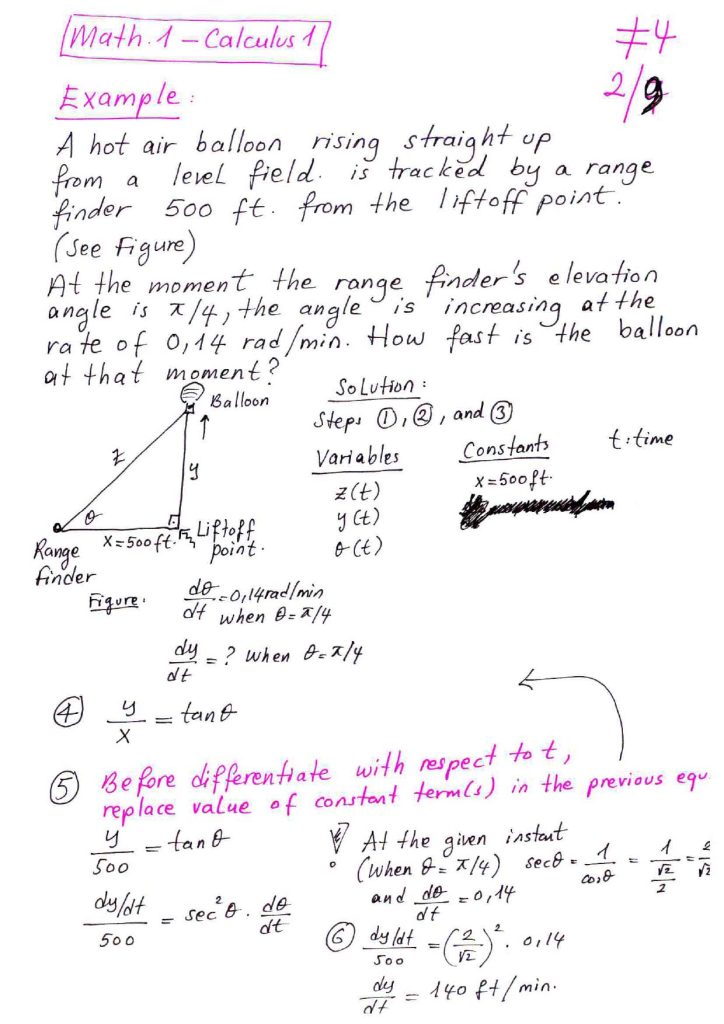 Math.1 – Calculus 1
#4
2/9
Example:
A hot air balloon rising straight up
from a level field. is tracked by a range
finder 500 ft. from the liftoff point.
(See Figure)
At the moment the range finder's elevation
angle is π/4, the angle is increasing at the
rate of 0,14 rad/min. How fast is the balloon
at that moment?
Balloon
z
y
θ
x=500ft.
Liftoff
point.
Range
finder
Figure.
Solution:
Steps ①, ②, and ③
Variables
z(t)
y(t)
θ(t)
Constants
x=500ft.
t:time
dθ/dt = 0,14rad/min
when θ=π/4
dy/dt = ? when θ=π/4
④ y/x = tanθ
⑤ Before differentiate with respect to t,
replace value of constant term(s) in the previous equ
y/500 = tanθ
(dy/dt)/500 = sec²θ . dθ/dt
At the given instant
(when θ=π/4) secθ = 1/cosθ = 1/(√2/2) = 2/√2
and dθ/dt = 0,14
⑥ (dy/dt)/500 = (2/√2)². 0,14
dy/dt = 140 ft/min.